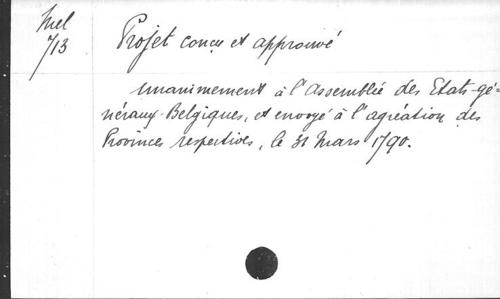 Mel
713
Projet conçu et approuvé
unanimement à l'Assemblée des Etats-gé-
néraux-Belgiques, et envoyé à l'agréation des
Provinces respectives, le 31 Mars 1790.